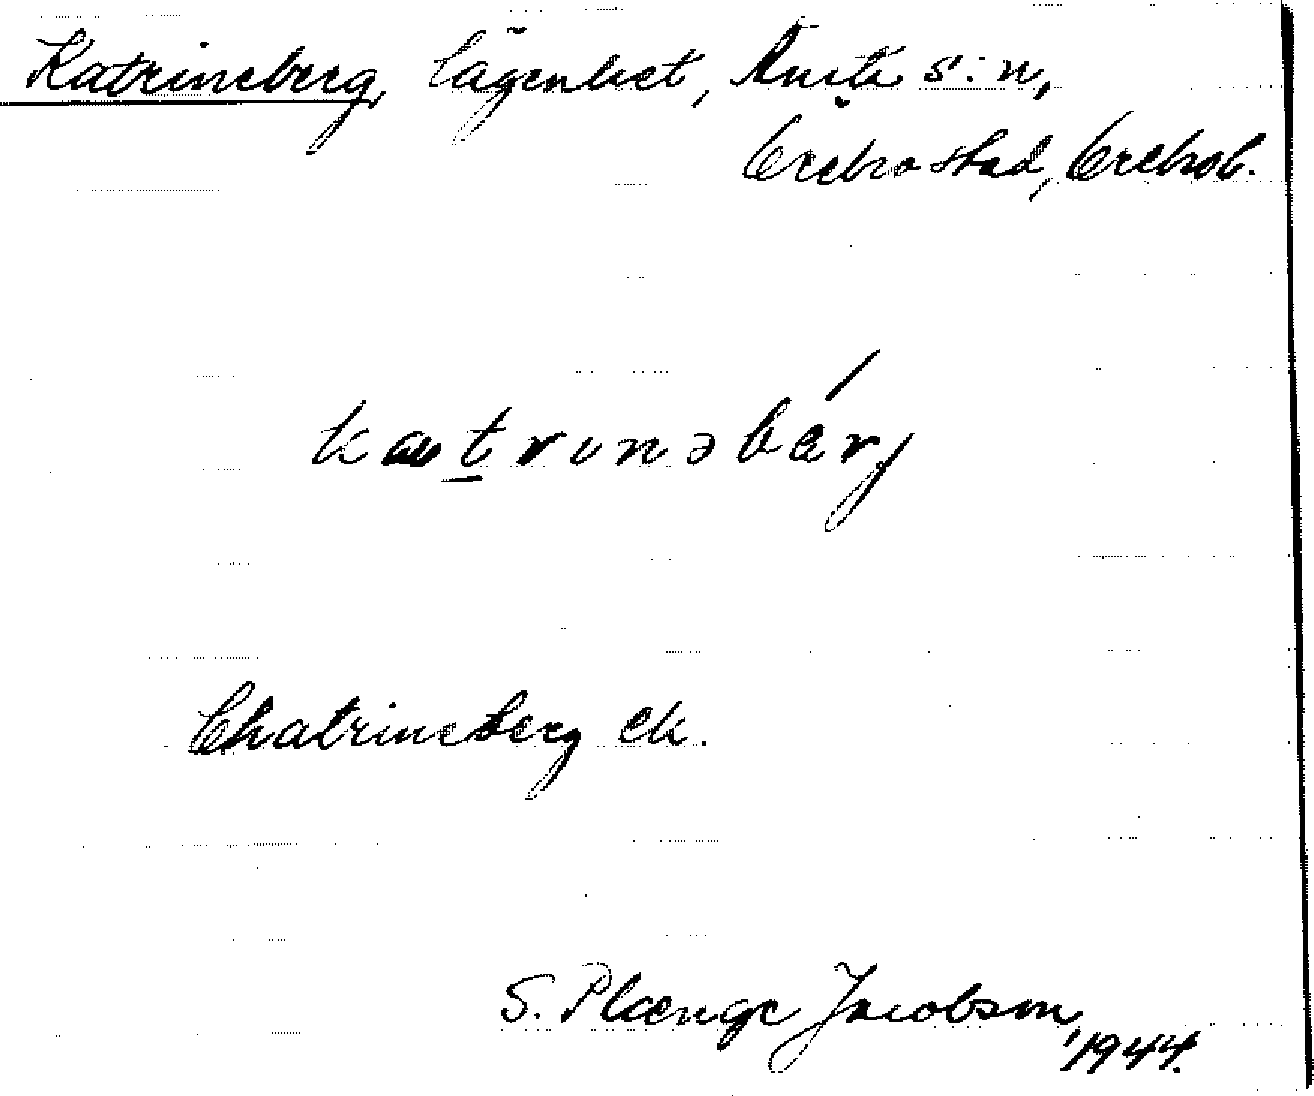 Katrineberg, lägenhet, Ånsta s:n,
Örebro stad, Örebro l.
katrinəbärj
Chatrineberg ek.
S. Plænge Jacobson, 1944.